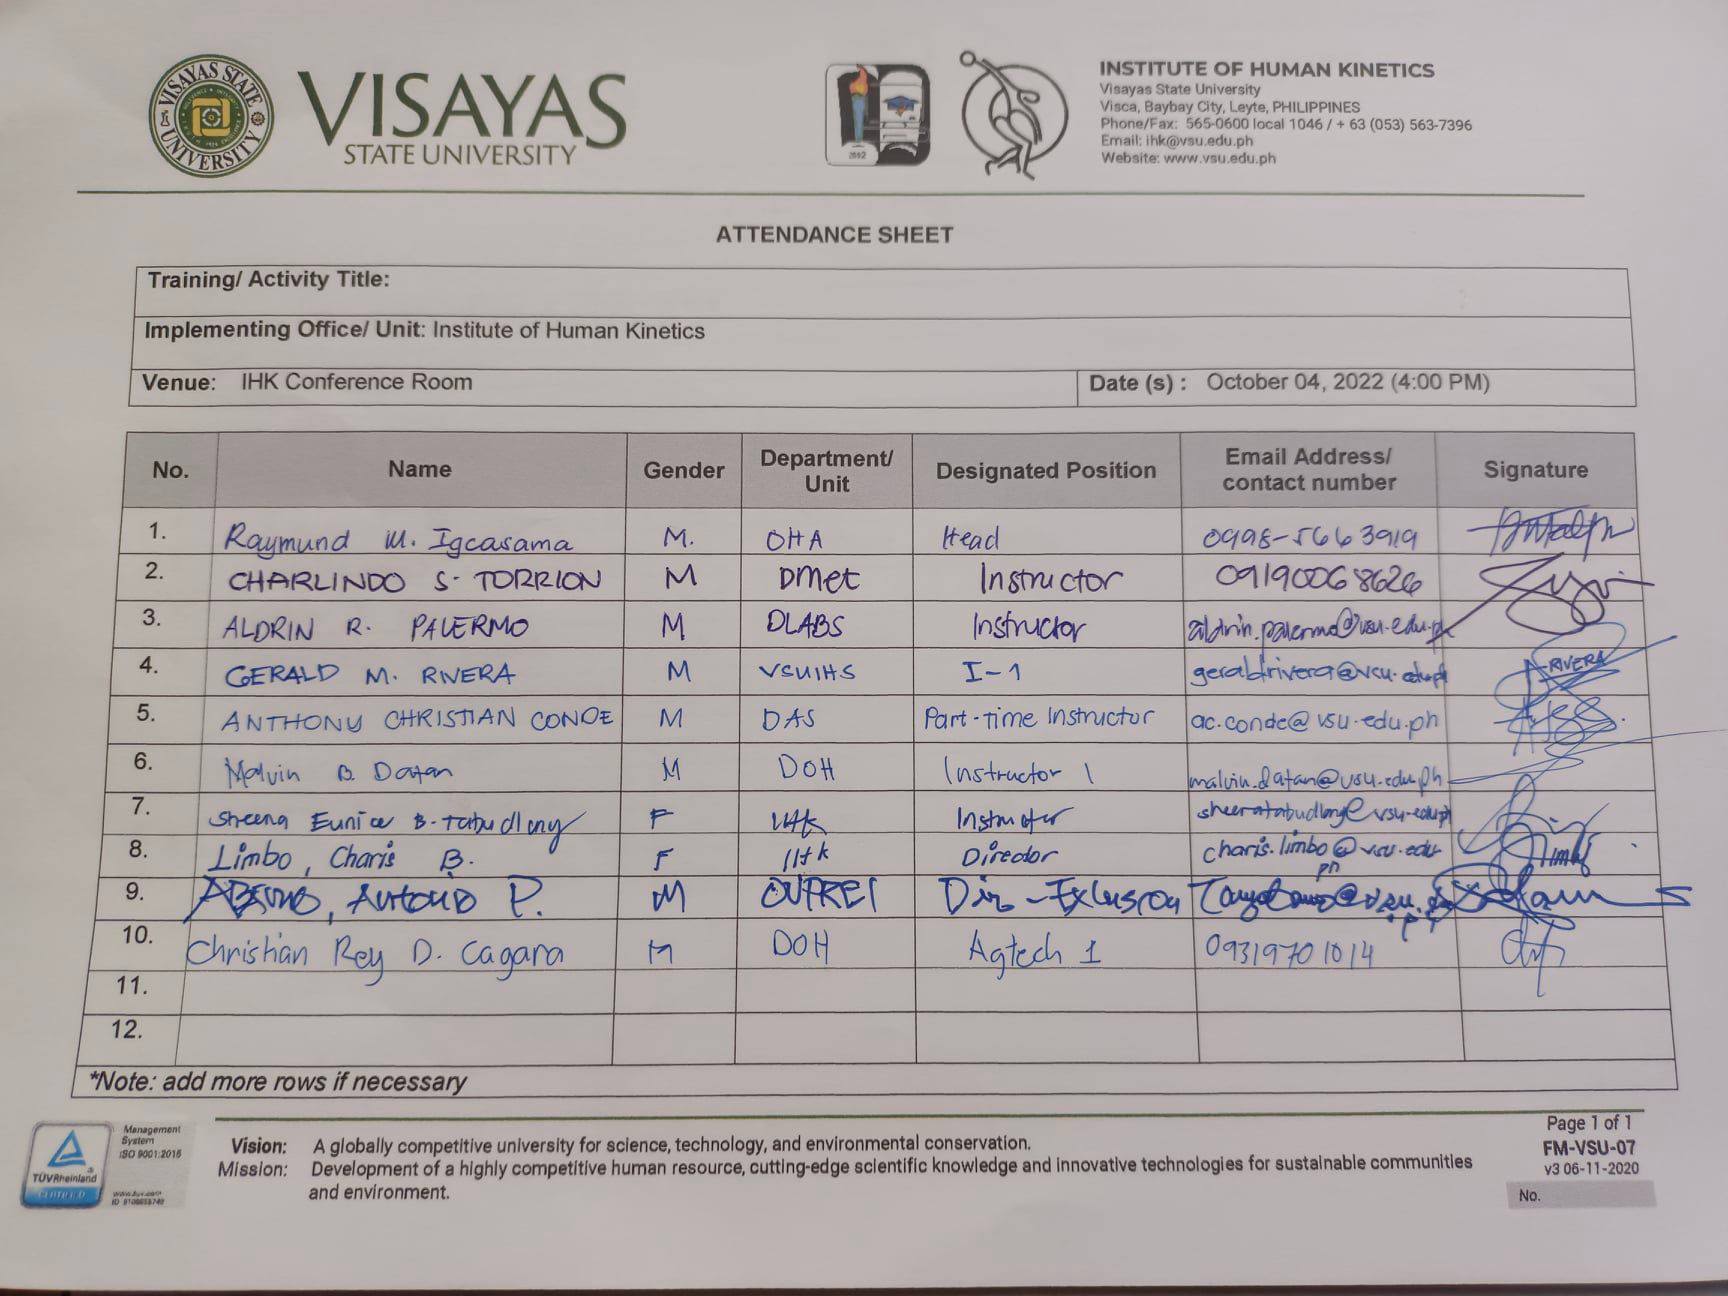 VISAYAS STATE UNIVERSITY
VISAYAS
STATE UNIVERSITY
INSTITUTE OF HUMAN KINETICS
Visayas State University
Visca, Baybay City, Leyte, PHILIPPINES
Phone/Fax: 565-0600 local 1046 / + 63 (053) 563-7396
Email: ihk@vsu.edu.ph
Website: www.vsu.edu.ph
ATTENDANCE SHEET
Training/ Activity Title:
Implementing Office/ Unit: Institute of Human Kinetics
Venue: IHK Conference Room Date (s) : October 04, 2022 (4:00 PM)
No. Name Gender Department/ Unit Designated Position Email Address/ contact number Signature
1. Raymund M. Igcasama M. OHA Head 0998-5663919
2. CHARLINDO S. TORRION M DMet Instructor 09190068626
3. ALDRIN R. PALERMO M DLABS Instructor aldrin.palermo@vsu.edu.ph
4. GERALD M. RIVERA M VSUIHS I-1 geraldrivera@vsu.edu.ph RIVERA
5. ANTHONY CHRISTIAN CONDE M DAS Part-time Instructor ac.conde@vsu.edu.ph
6. Malvin B. Datan M DOH Instructor 1 malvin.datan@vsu.edu.ph
7. Sheena Eunice B. Tabudlong F Instructor
8. Limbo, Charis B. F IHK Director charis.limbo@vsu.edu.ph
9. Antonio P. M OVPREI
10. Christian Rey D. Cagara M DOH Agtech 1 09319701014
11.
12.
*Note: add more rows if necessary
Management
System
ISO 9001:2015
TÜVRheinland
CERTIFIED
Vision: A globally competitive university for science, technology, and environmental conservation.
Mission: Development of a highly competitive human resource, cutting-edge scientific knowledge and innovative technologies for sustainable communities
and environment.
Page 1 of 1
FM-VSU-07
v3 06-11-2020
No.